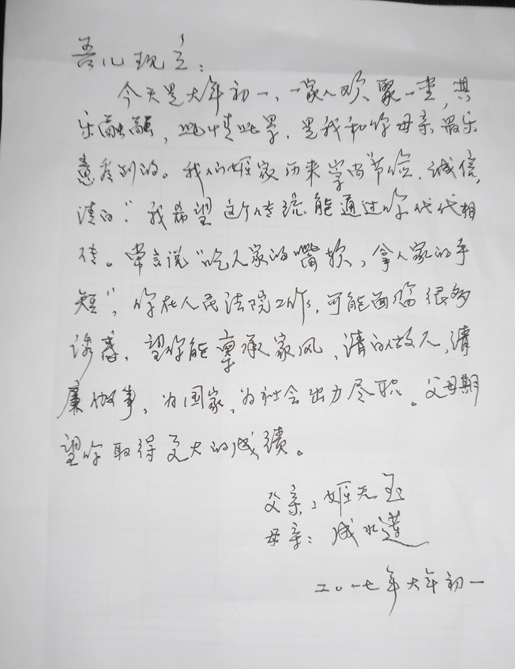 吾儿现立：
今天是大年初一，一家人欢聚一堂，其
乐融融，此情此景，是我和你母亲最乐
意看到的。我们姬家历来崇尚“节俭、诚信、
清白”，我希望这个传统能通过你代代相
传。常言说“吃人家的嘴软，拿人家的手
短”，你在人民法院工作，可能面临很多
诱惑，望你能秉承家风，清白做人，清
廉做事，为国家，为社会出力尽职。父母期
望你取得更大的成绩。
父亲：姬光
母亲：成水莲
二〇一七年大年初一